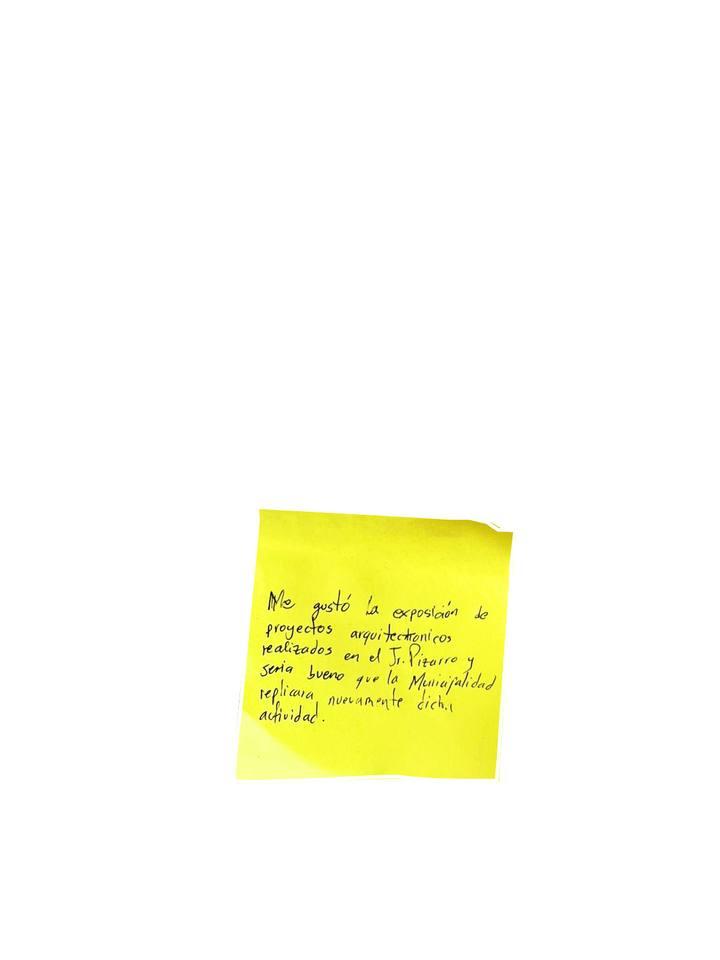 Me gustó la exposición de
proyectos arquitectronicos
realizados en el Jr. Pizarro y
seria bueno que la Municipalidad
replicara nuevamente dicha
actividad.